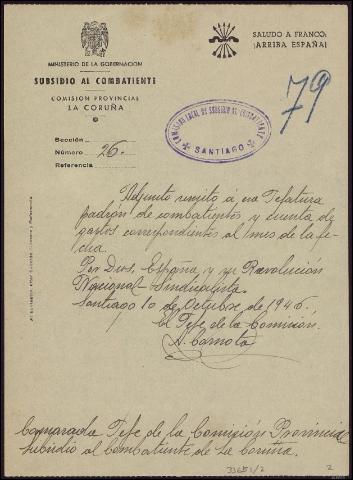 MINISTERIO DE LA GOBERNACION
SUBSIDIO AL COMBATIENTE
COMISION PROVINCIAL
LA CORUÑA
SALUDO A FRANCO:
¡ARRIBA ESPAÑA!
79
COMISION LOCAL DE SUBSIDIO AL COMBATIENTE
SANTIAGO
Sección
Número 26.
Referencia
Adjunto remito á esa Jefatura
padrón de combatientes y cuenta de
gastos correspondientes al mes de la fe-
cha.
Por Dios, España, y su Revolución
Nacional-Sindicalista.
Santiago 10 de Octubre de 1946.
El Jefe de la Comisión.
A. Carnota
Camarada Jefe de la Comisión Provincial
Subsidio al Combatiente de La Coruña.
2